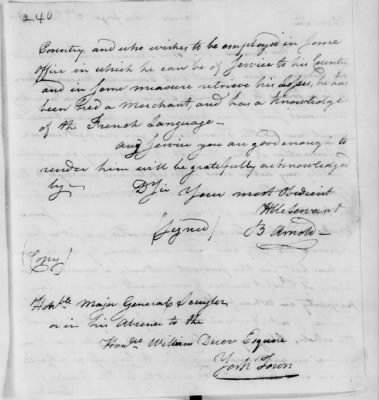 240
Country and who wishes to be employed in some
Office in which he can be of Service to his Country
and in some measure retrieve his Losses, he has
been bred a Merchant, and has a knowledge
of the French Language —
any Service you are good enough to
render him will be gratefully acknowledged
by — Dr Sir Your most Obedient
Hble Servant
(Signed) B Arnold —
(Copy)
Honble Major General Scuyler
or in his Absence to the
Honble William Duer Esquire
York Town